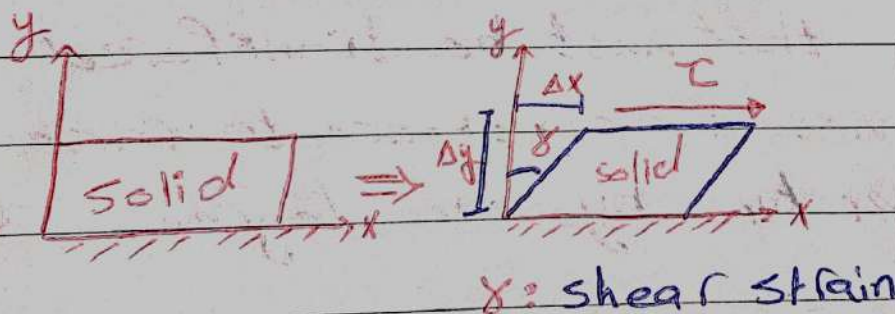 y
solid
x
⇒
y
Δx
τ
Δy
γ
solid
x
γ: shear strain